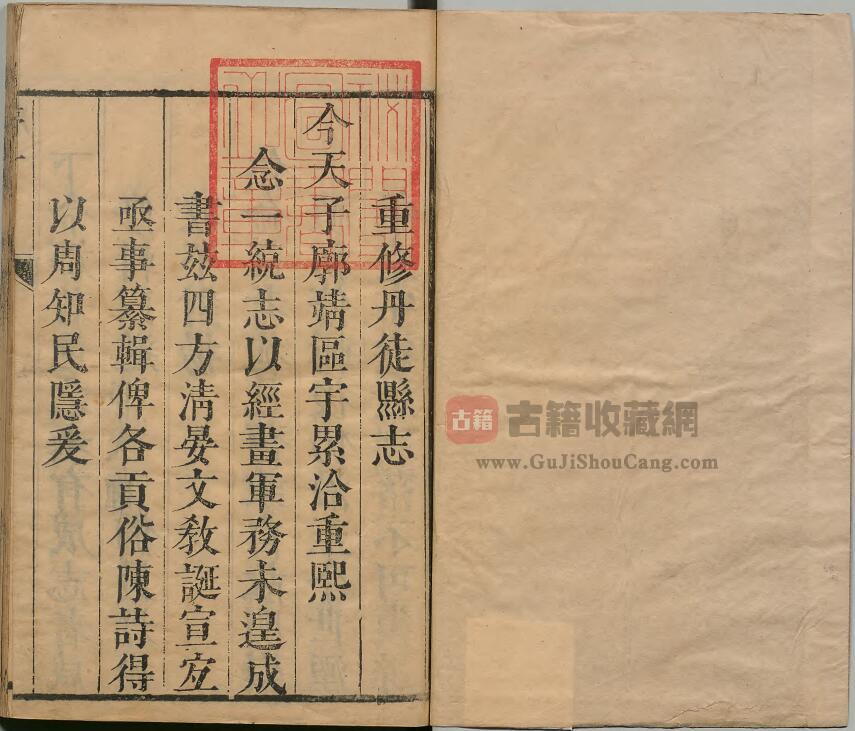 重修丹徒縣志
今天子廓靖區宇累洽重熙
念一統志以經畫軍務未遑成
書兹四方清晏文敎誕宣宜
亟事纂輯俾各貢俗陳詩得
以周知民隱爰
古籍
古籍收藏網
www.GuJiShouCang.com